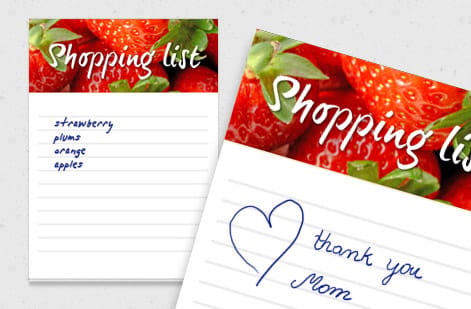 Shopping list
strawberry
plums
orange
apples
Shopping lis
thank you
Mom